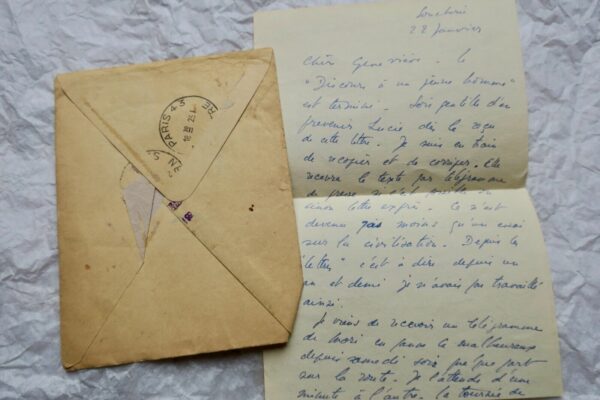 22 Janvier
Cher Geneviève. Le
"Discours à un jeune homme"
est terminé. Sois gentille d'en
prévenir Lucie dès le reçu
de cette lettre. Je suis en train
de recopier et de corriger. Elle
recevra le texte par télégramme
de presse si c'est possible ou
sinon lettre exprès. Ce n'est
devenu pas moins qu'un essai
sur la civilisation. Depuis la
"lettre" c'est à dire depuis un
an et demi je n'avais pas travaillé
ainsi.
Je viens de recevoir un télégramme
de en panne le malheureux
depuis samedi soir quelque part
sur la route. Je l'attends d'une
minute à l'autre. La tournée de
PARIS